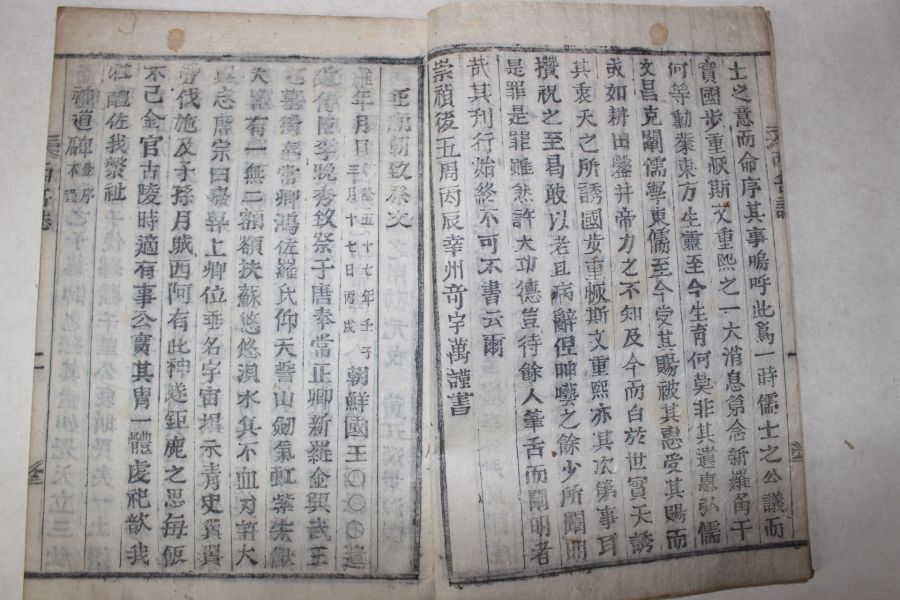 士之意而命序其事嗚呼此爲一時儒士之公議而
實國步重恢斯文重熙之一大消息第念新羅角干
何等動業東方生靈至今生育何莫非其遺惠弘儒
文昌克闡儒學東儒至今受其賜被其惠受其賜而
或如耕田鑿井帝力之不知及今而白於世實天誘
其衷天之所誘國步重恢斯文重熙亦其次第事耳
攢祝之至曷敢以老且病辭但呻囈之餘少所闡明
是罪是罪雖然許大功德豈待餘人筆舌而闡明者
哉其刊行始終不可不書云爾
崇禎後五周丙辰幸州奇宇萬謹書
正廟朝致祭文
年月日 乾隆五十七年壬子三月十七日丙戌 朝鮮國王○○○○遣
近侍臣李晚秀致祭于唐奉常正卿新羅金興武王
之墓猗奉常卿鴻佐羅氏仰天誓山劒氣虹紫宋獻
大畧有一無二額額扶蘇悠悠浿水其不血刃許大
其志唐宗曰嘉畀上卿位垂名宇宙揭示青史翼翼
勞伐施及子孫月城西阿有此神燧鉅鹿之思每飯
不已金官古陵時適有事公實其冑一體虔祀歆我
牲醴佐我繁祉
神道碑